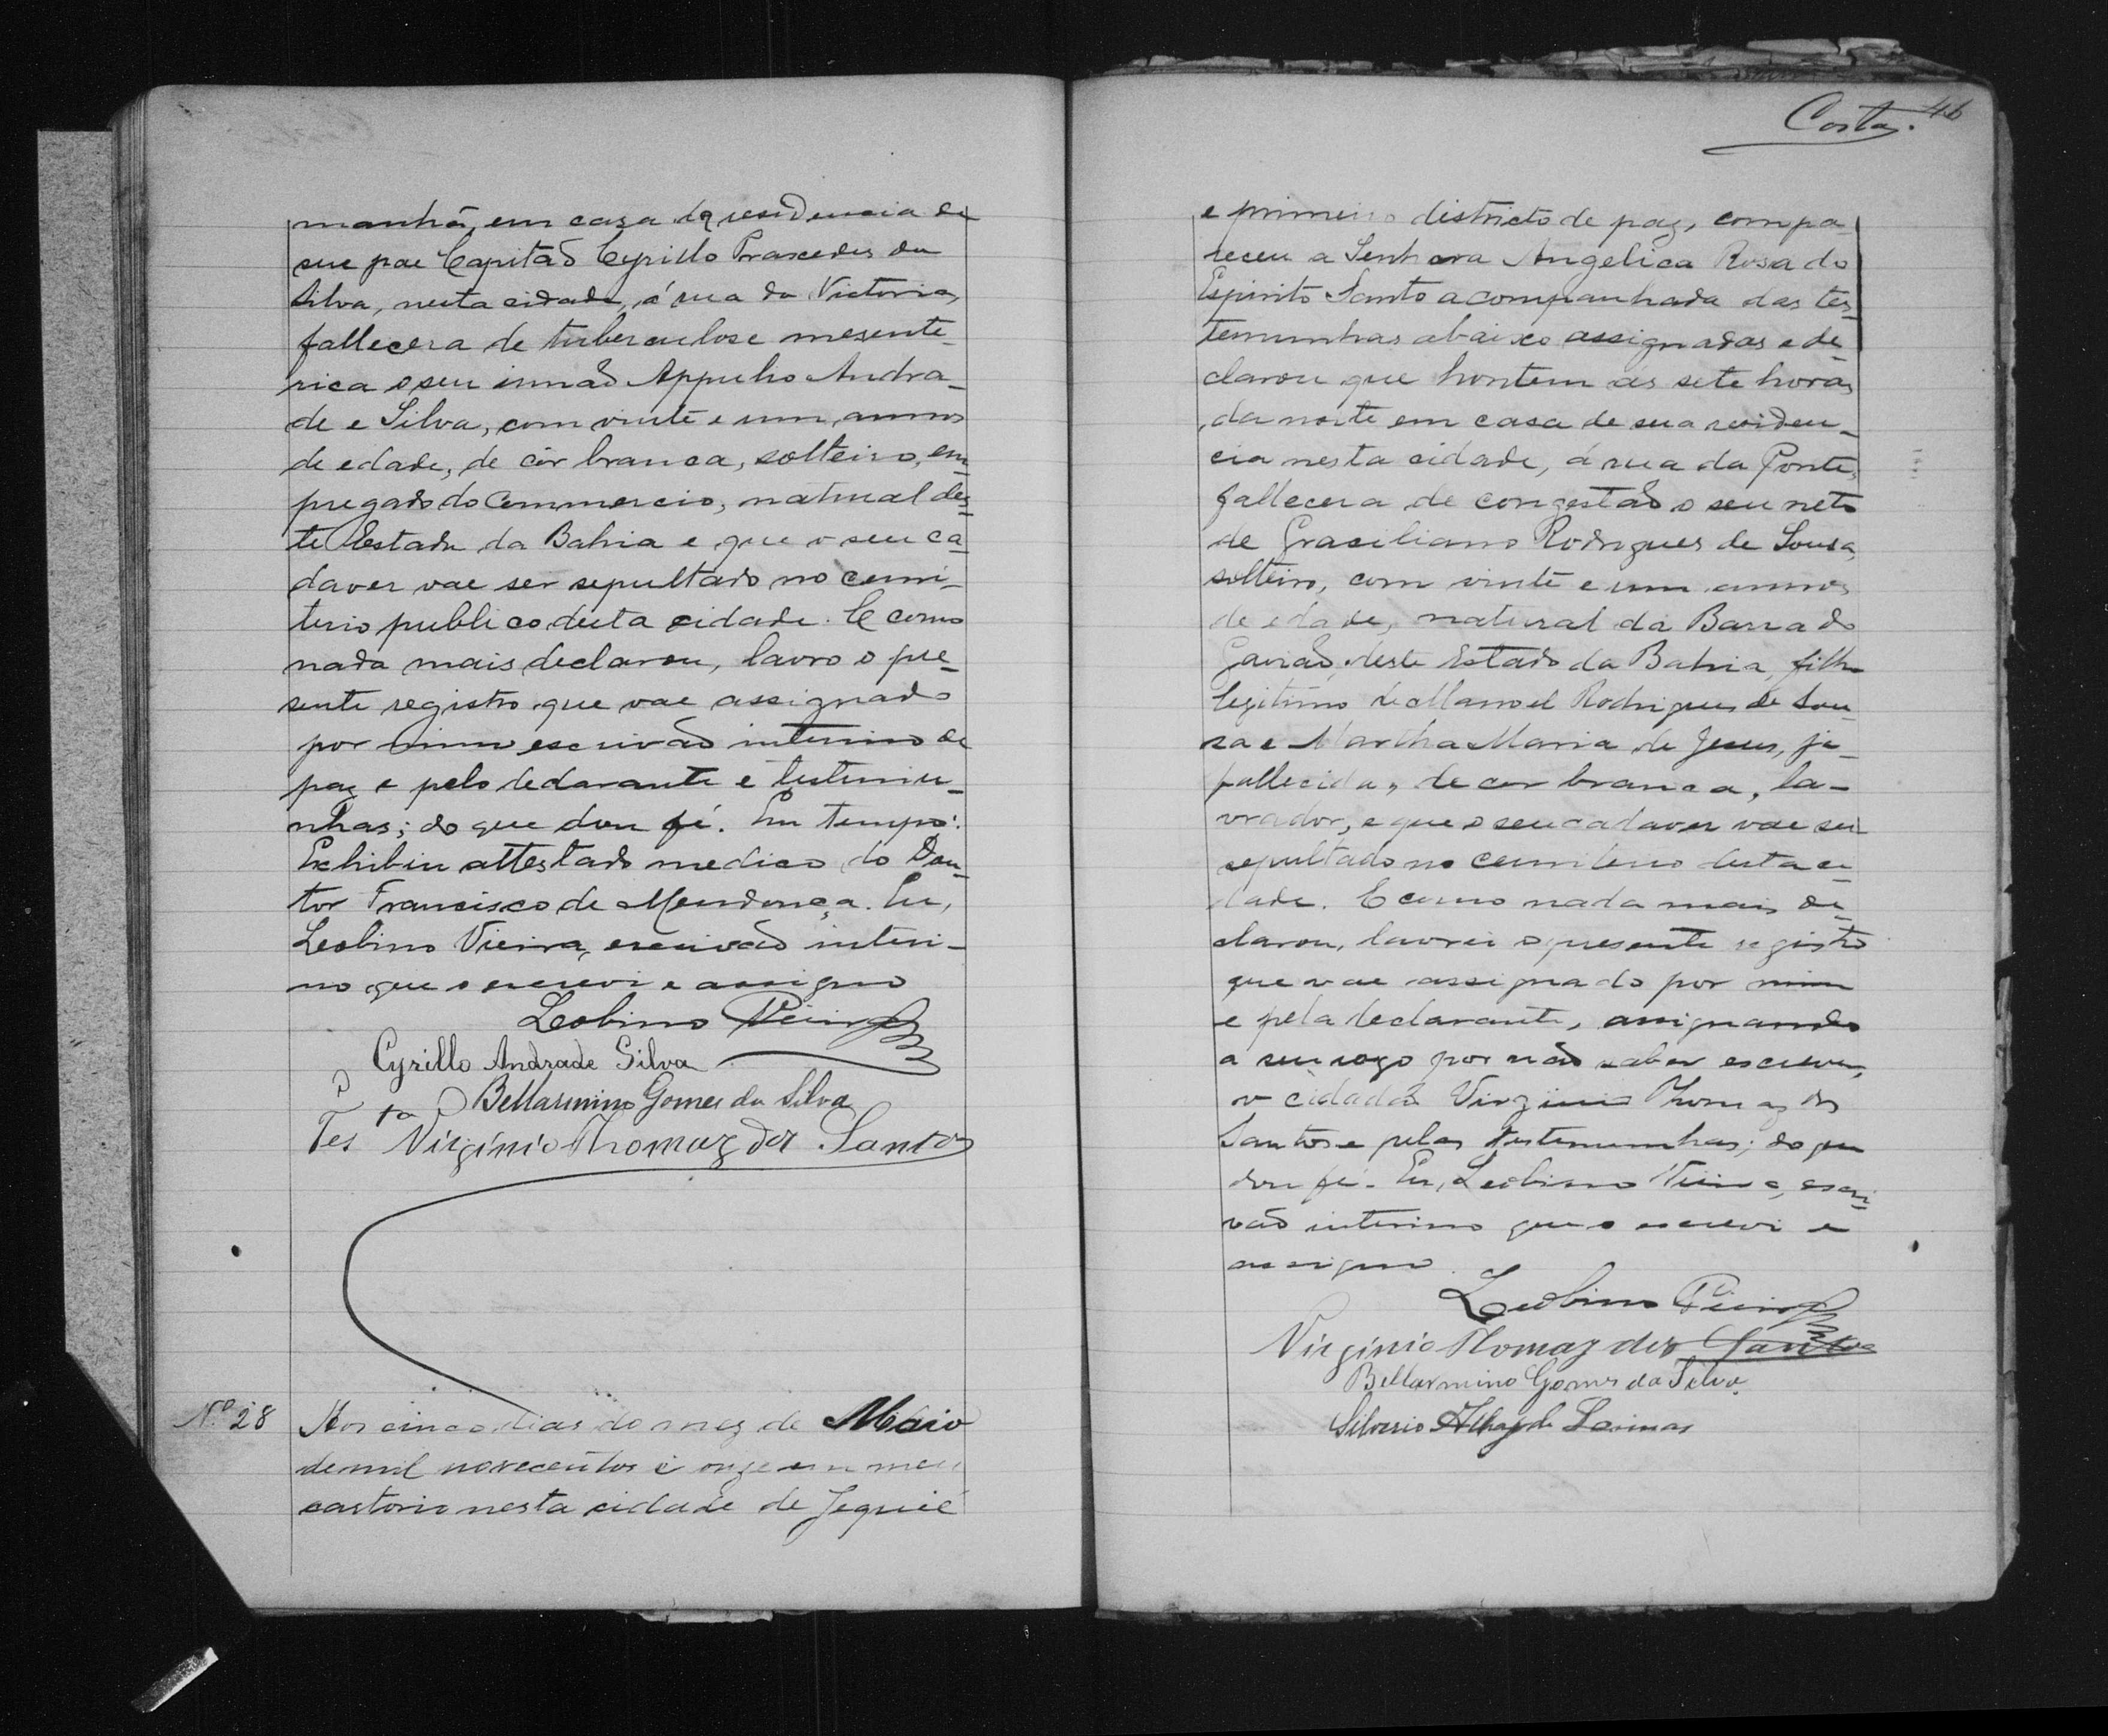 manhã, em casa da residencia de
seu pae Capitão Cyrillo Praxedes da
Silva, nesta cidade, á rua da Victoria,
fallecera de tuberculose mesente-
rica o seu irmão Appulio Andra-
de e Silva, com vinte e um annos
de edade, de côr branca, solteiro, em-
pregado do Commercio, natural des-
te Estado da Bahia e que o seu ca-
daver vae ser sepultado no cemi-
terio publico desta cidade. E como
nada mais declarou, lavro o pre-
sente registro que vae assignado
por mim escrivão interino de
paz e pelo declarante e testemu-
nhas; do que dou fé. Em tempo:
Exhibiu attestado medico do Dou-
tor Francisco de Mendonça. Eu,
Leobino Vieira, escrivão interi-
no que o escrevi e assigno
Leobino Vieira
Cyrillo Andrade Silva
Bellarmino Gomes da Silva
Tes ta Virginio Thomaz dos Santos
Nº 28 Aos cinco dias do mez de Maio
de mil novecentos e onze em meu
cartorio nesta cidade de Jequié
Costa. 46
e primeiro districto de paz, compa-
receu a Senhora Angelica Rosa do
Espirito Santo acompanhada das tes-
temunhas abaixo assignadas e de-
clarou que hontem ás sete horas
da noite em casa de sua residen-
cia nesta cidade, á rua da Ponte,
fallecera de congestão o seu neto
de Graciliano Rodrigues de Sousa,
solteiro, com vinte e um annos
de edade, natural da Barra do
Gavião, deste Estado da Bahia, filho
legitimo de Manoel Rodrigues de Sou-
sa e Martha Maria de Jesus, já
fallecida, de cor branca, la-
vrador, e que o seu cadaver vae ser
sepultado no cemiterio desta ci-
dade. E como nada mais de-
clarou, lavrei o presente registro
que vae assignado por mim
e pela declarante, assignando
a seu rogo por não saber escrever,
o cidadão Virginio Thomaz dos
Santos e pelas testemunhas; do que
dou fé. Eu, Leobino Vieira, escri-
vão interino que o escrevi e
assigno.
Leobino Vieira
Virginio Thomaz dos Santos
Bellarmino Gomes da Silva
Silverio